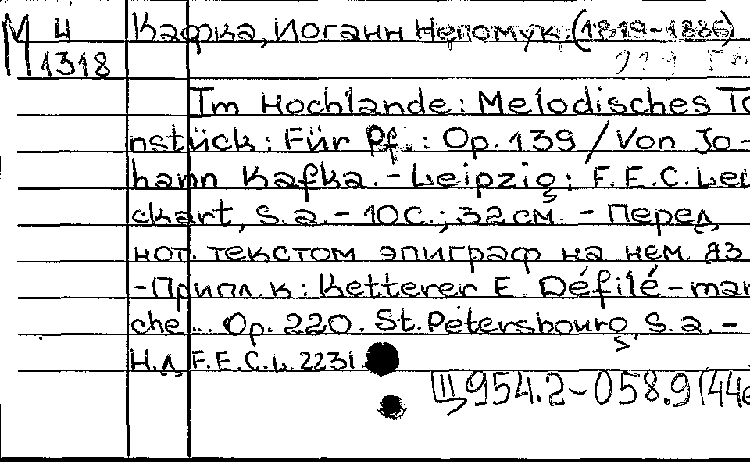 М Ц Кафка, Иоганн Непомук (1819-1886)
1318
Im Hochlande: Melodisches To
nstück: Für Pf.: Op. 139 / Von Jo-
hann Kafka. - Leipzig: F.E.C. Leu
ckart, S. a. - 10 с.; 32 см. - Перед
нот. текстом эпиграф на нем. яз
- Припл. к: Ketterer E. Défilé-mar
che... Op. 220. St. Petersbourg, S. a. -
Н.д. F.E.C.L. 2231.
Щ954.2-058.9(44